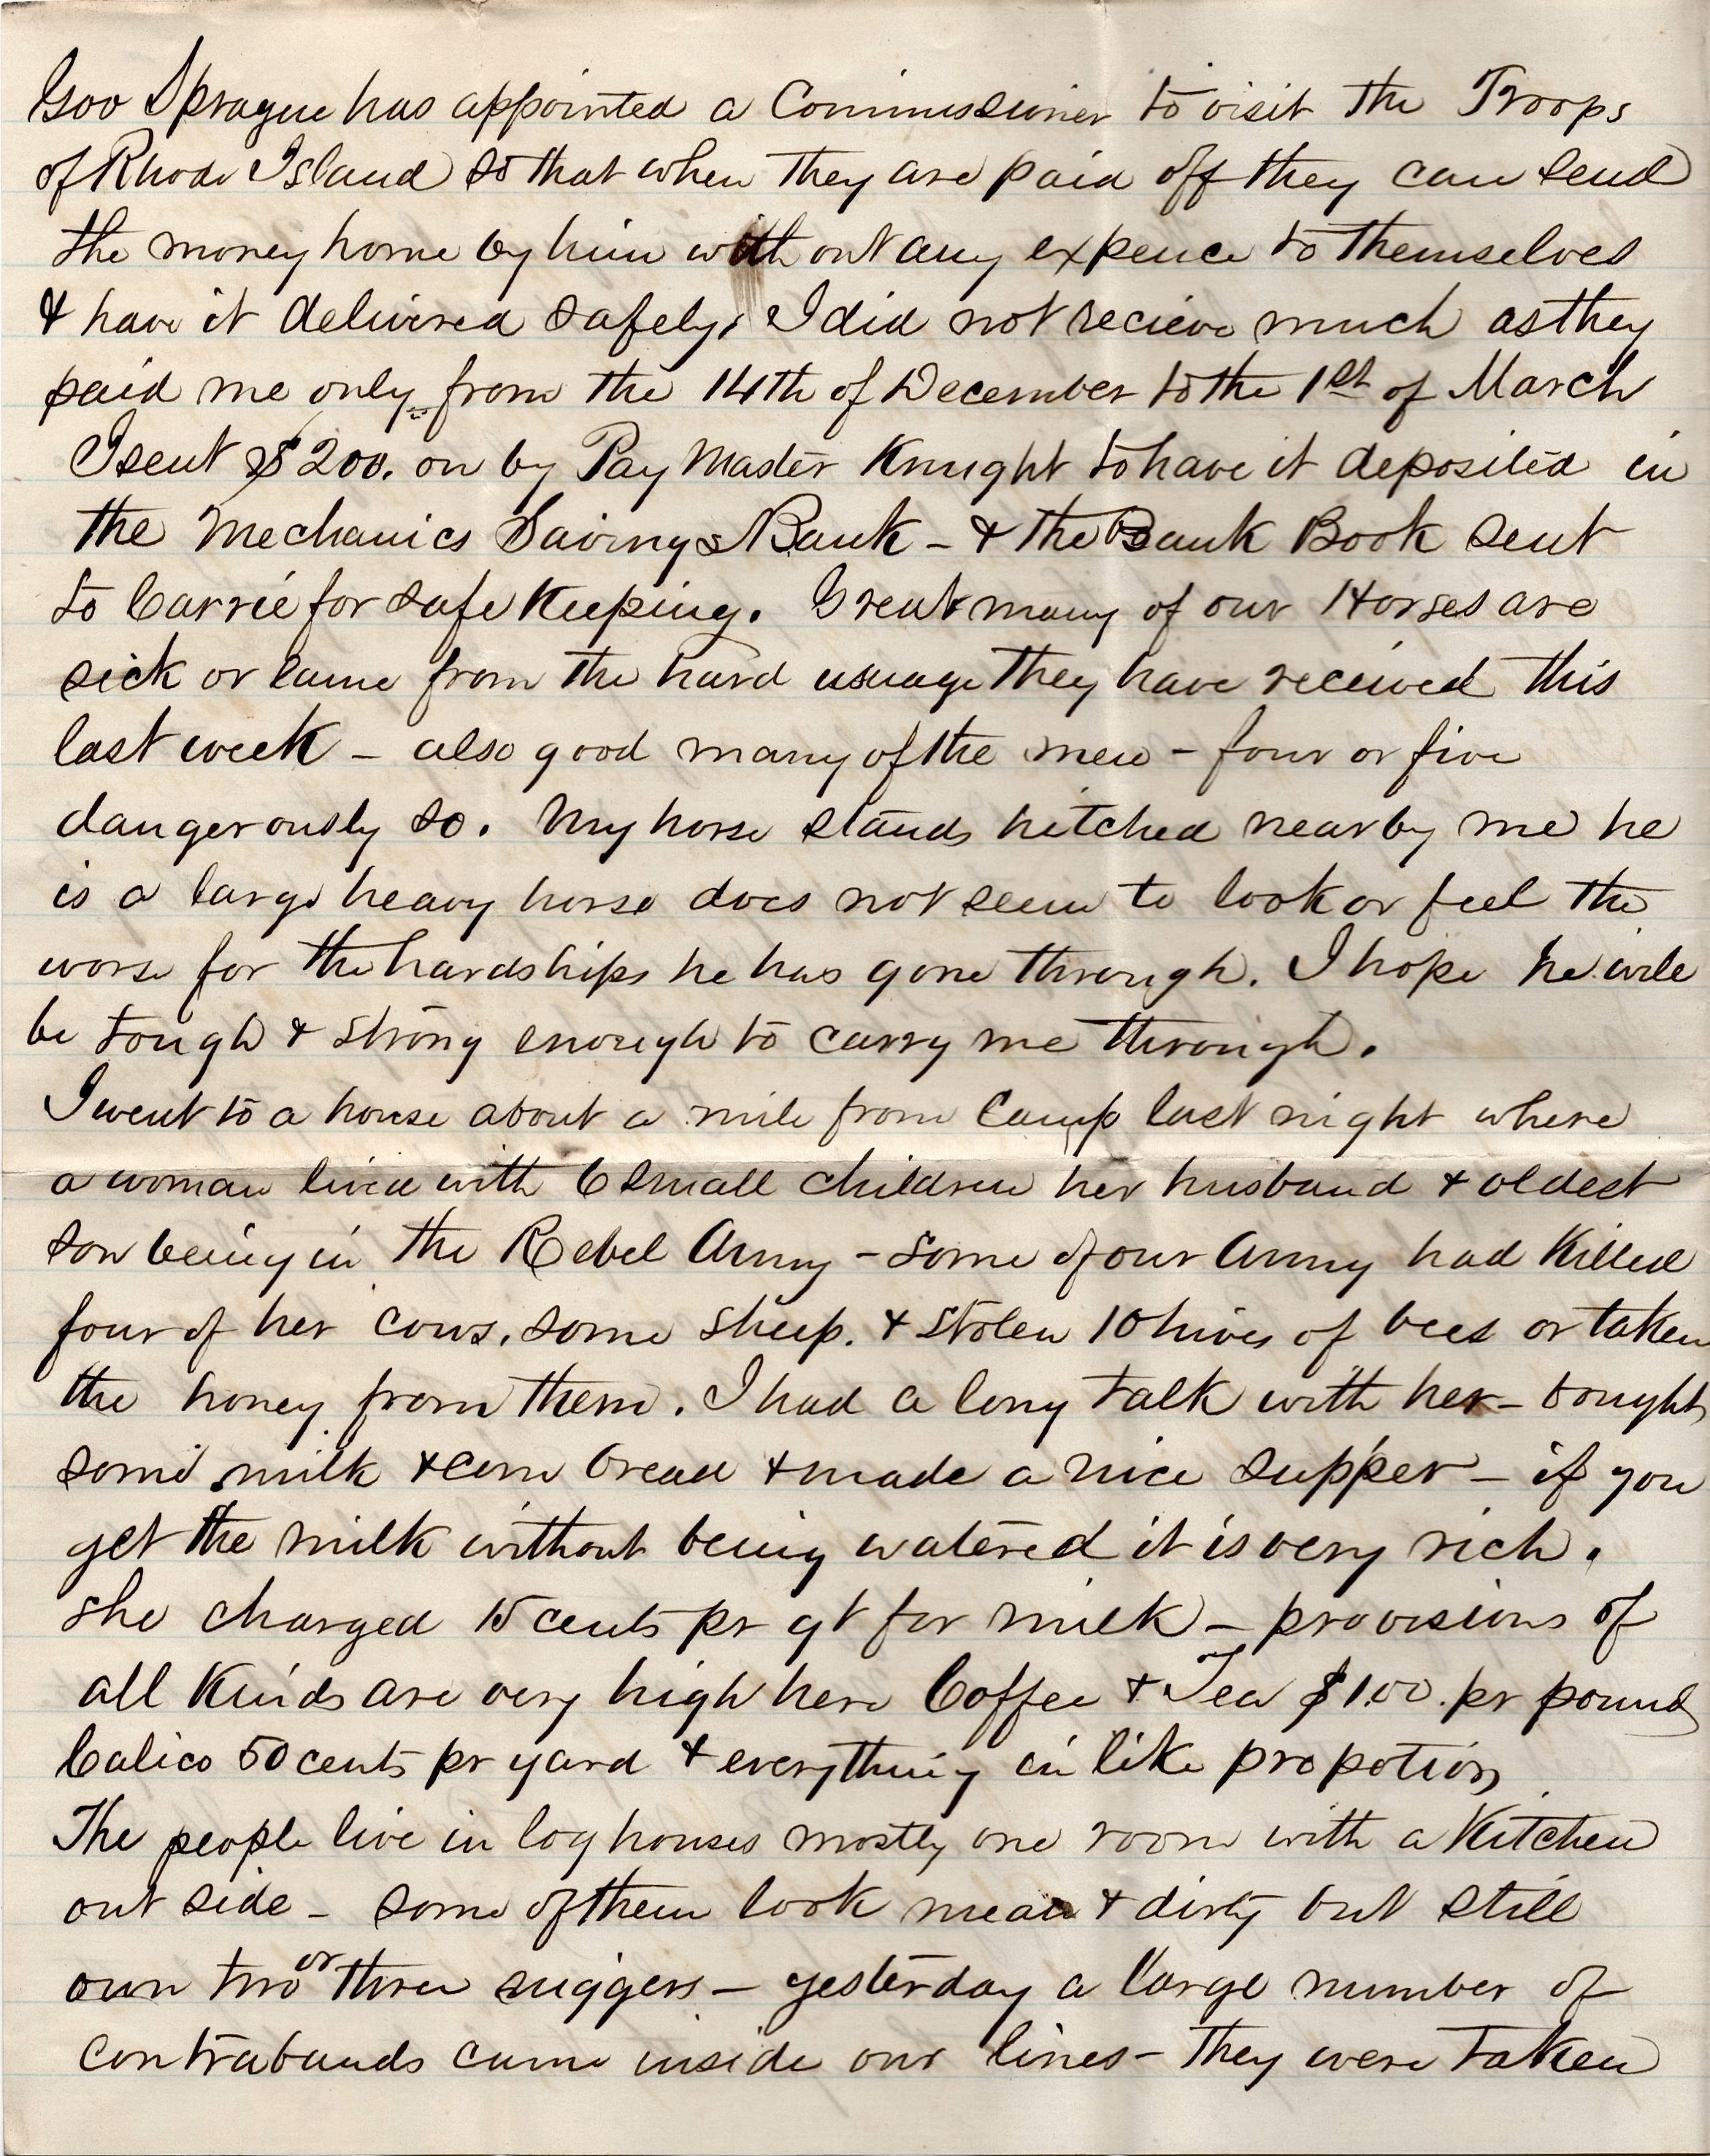 Gov Sprague has appointed a Commissioner to visit the Troops
of Rhode Island so that when they are paid off they can send
the money home by him with out any expence to themselves
& have it delivered safely, I did not recieve much as they
paid me only from the 14th of December to the 1st of March
I sent $200. on by Pay Master Knight to have it deposited in
the Mechanics Savings Bank - & the Bank Book sent
to Carrie for safe Keeping. Great many of our Horses are
sick or lame from the hard usuage they have received this
last week - also good many of the men - four or five
dangerously so. My horse stands hitched near by me he
is a large heavy horse does not seem to look or feel the
worse for the hardships he has gone through. I hope he will
be tough & strong enough to carry me through.
I went to a house about a mile from Camp last night where
a woman lived with 6 small children her husband & oldest
son being in the Rebel Army - some of our Army had Killed
four of her cows, some sheep. & stolen 10 hives of bees or taken
the honey from them. I had a long talk with her - bought
some milk & corn bread & made a nice supper - if you
get the milk without being watered it is very rich.
she charged 15 cents pr qt for milk - provisions of
all Kinds are very high here Coffee & Tea $1.00. pr pound
Calico 50 cents pr yard & everything in like propotion
The people live in log houses mostly one room with a Kitchen
out side - some of them look mean & dirty but still
own two or three niggers - yesterday a large number of
contrabands came inside our lines - They were taken